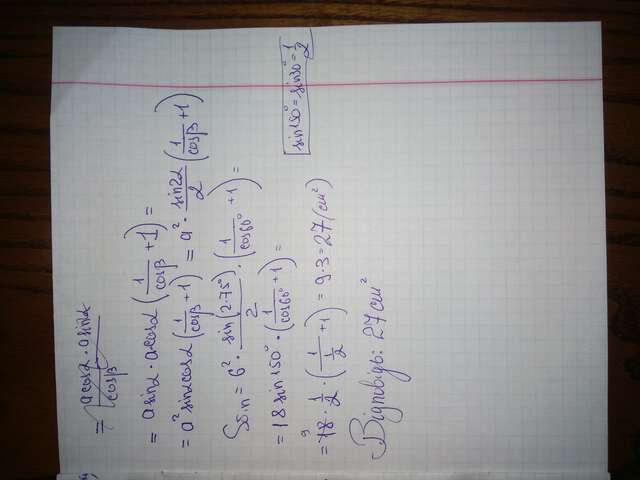 = a cosα · a sinα / cosβ
= a sinα · a cosα (1/cosβ + 1) =
= a² sinα cosα (1/cosβ + 1) = a² · sin2α/2 (1/cosβ + 1)
Sб.п = 6² · sin(2·75°)/2 · (1/cos60° + 1) =
= 18 sin150° · (1/cos60° + 1) =
sin150° = sin30° = 1/2
= 18 · 1/2 · (1/(1/2) + 1) = 9·3 = 27 (см²)
Відповідь: 27 см²